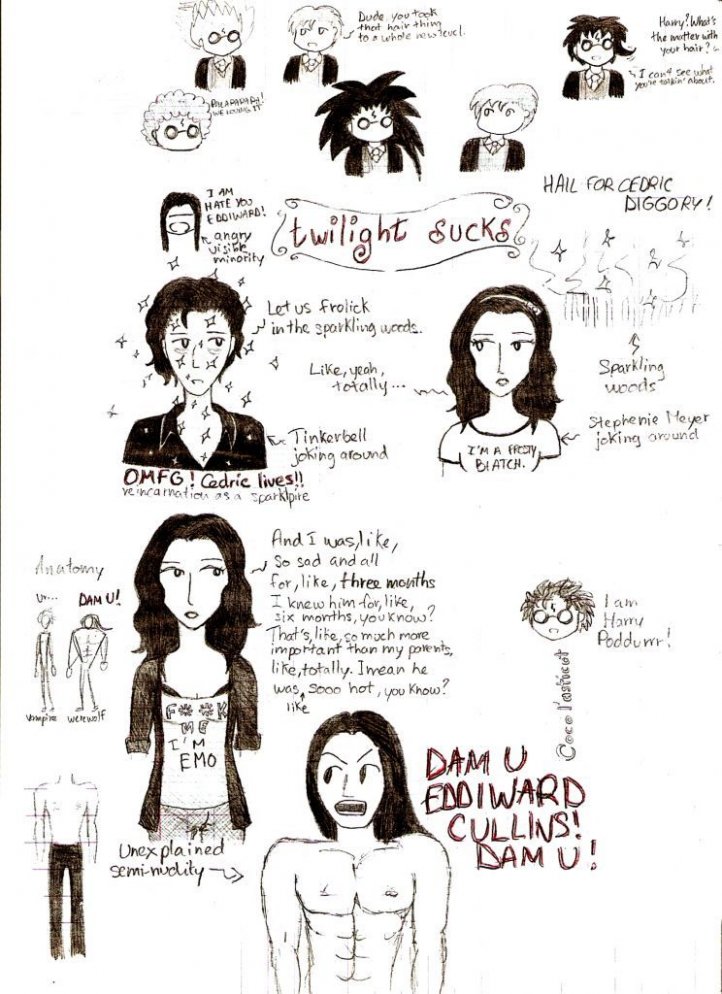 Dude, you took
that hair thing
to a whole new level.
Harry? What's
the matter with
your hair?
I can't see what
you're talkin' about.
WE LOVING IT
I AM
HATE YOU
EDDIWARD!
angry
visible
minority
twilight sucks
HAIL FOR CEDRIC
DIGGORY!
Let us frolick
in the sparkling woods.
Like, yeah,
totally...
Sparkling
woods
Tinkerbell
joking around
I'M A FROSTY
BIATCH.
Stephenie Meyer
joking around
OMFG! Cedric lives!!
reincarnation as a sparklpire
Anatomy
Ur...
DAM U!
vampire
werewolf
And I was, like,
so sad and all
for, like, three months
I knew him for, like,
six months, you know?
That's, like, so much more
important than my parents,
like, totally. I mean he
was sooo hot, you know?
like
F**K
ME
I'M
EMO
I am
Harry
Poddurrr!
Unexplained
semi-nudity
DAM U
EDDIWARD
CULLINS!
DAM U!